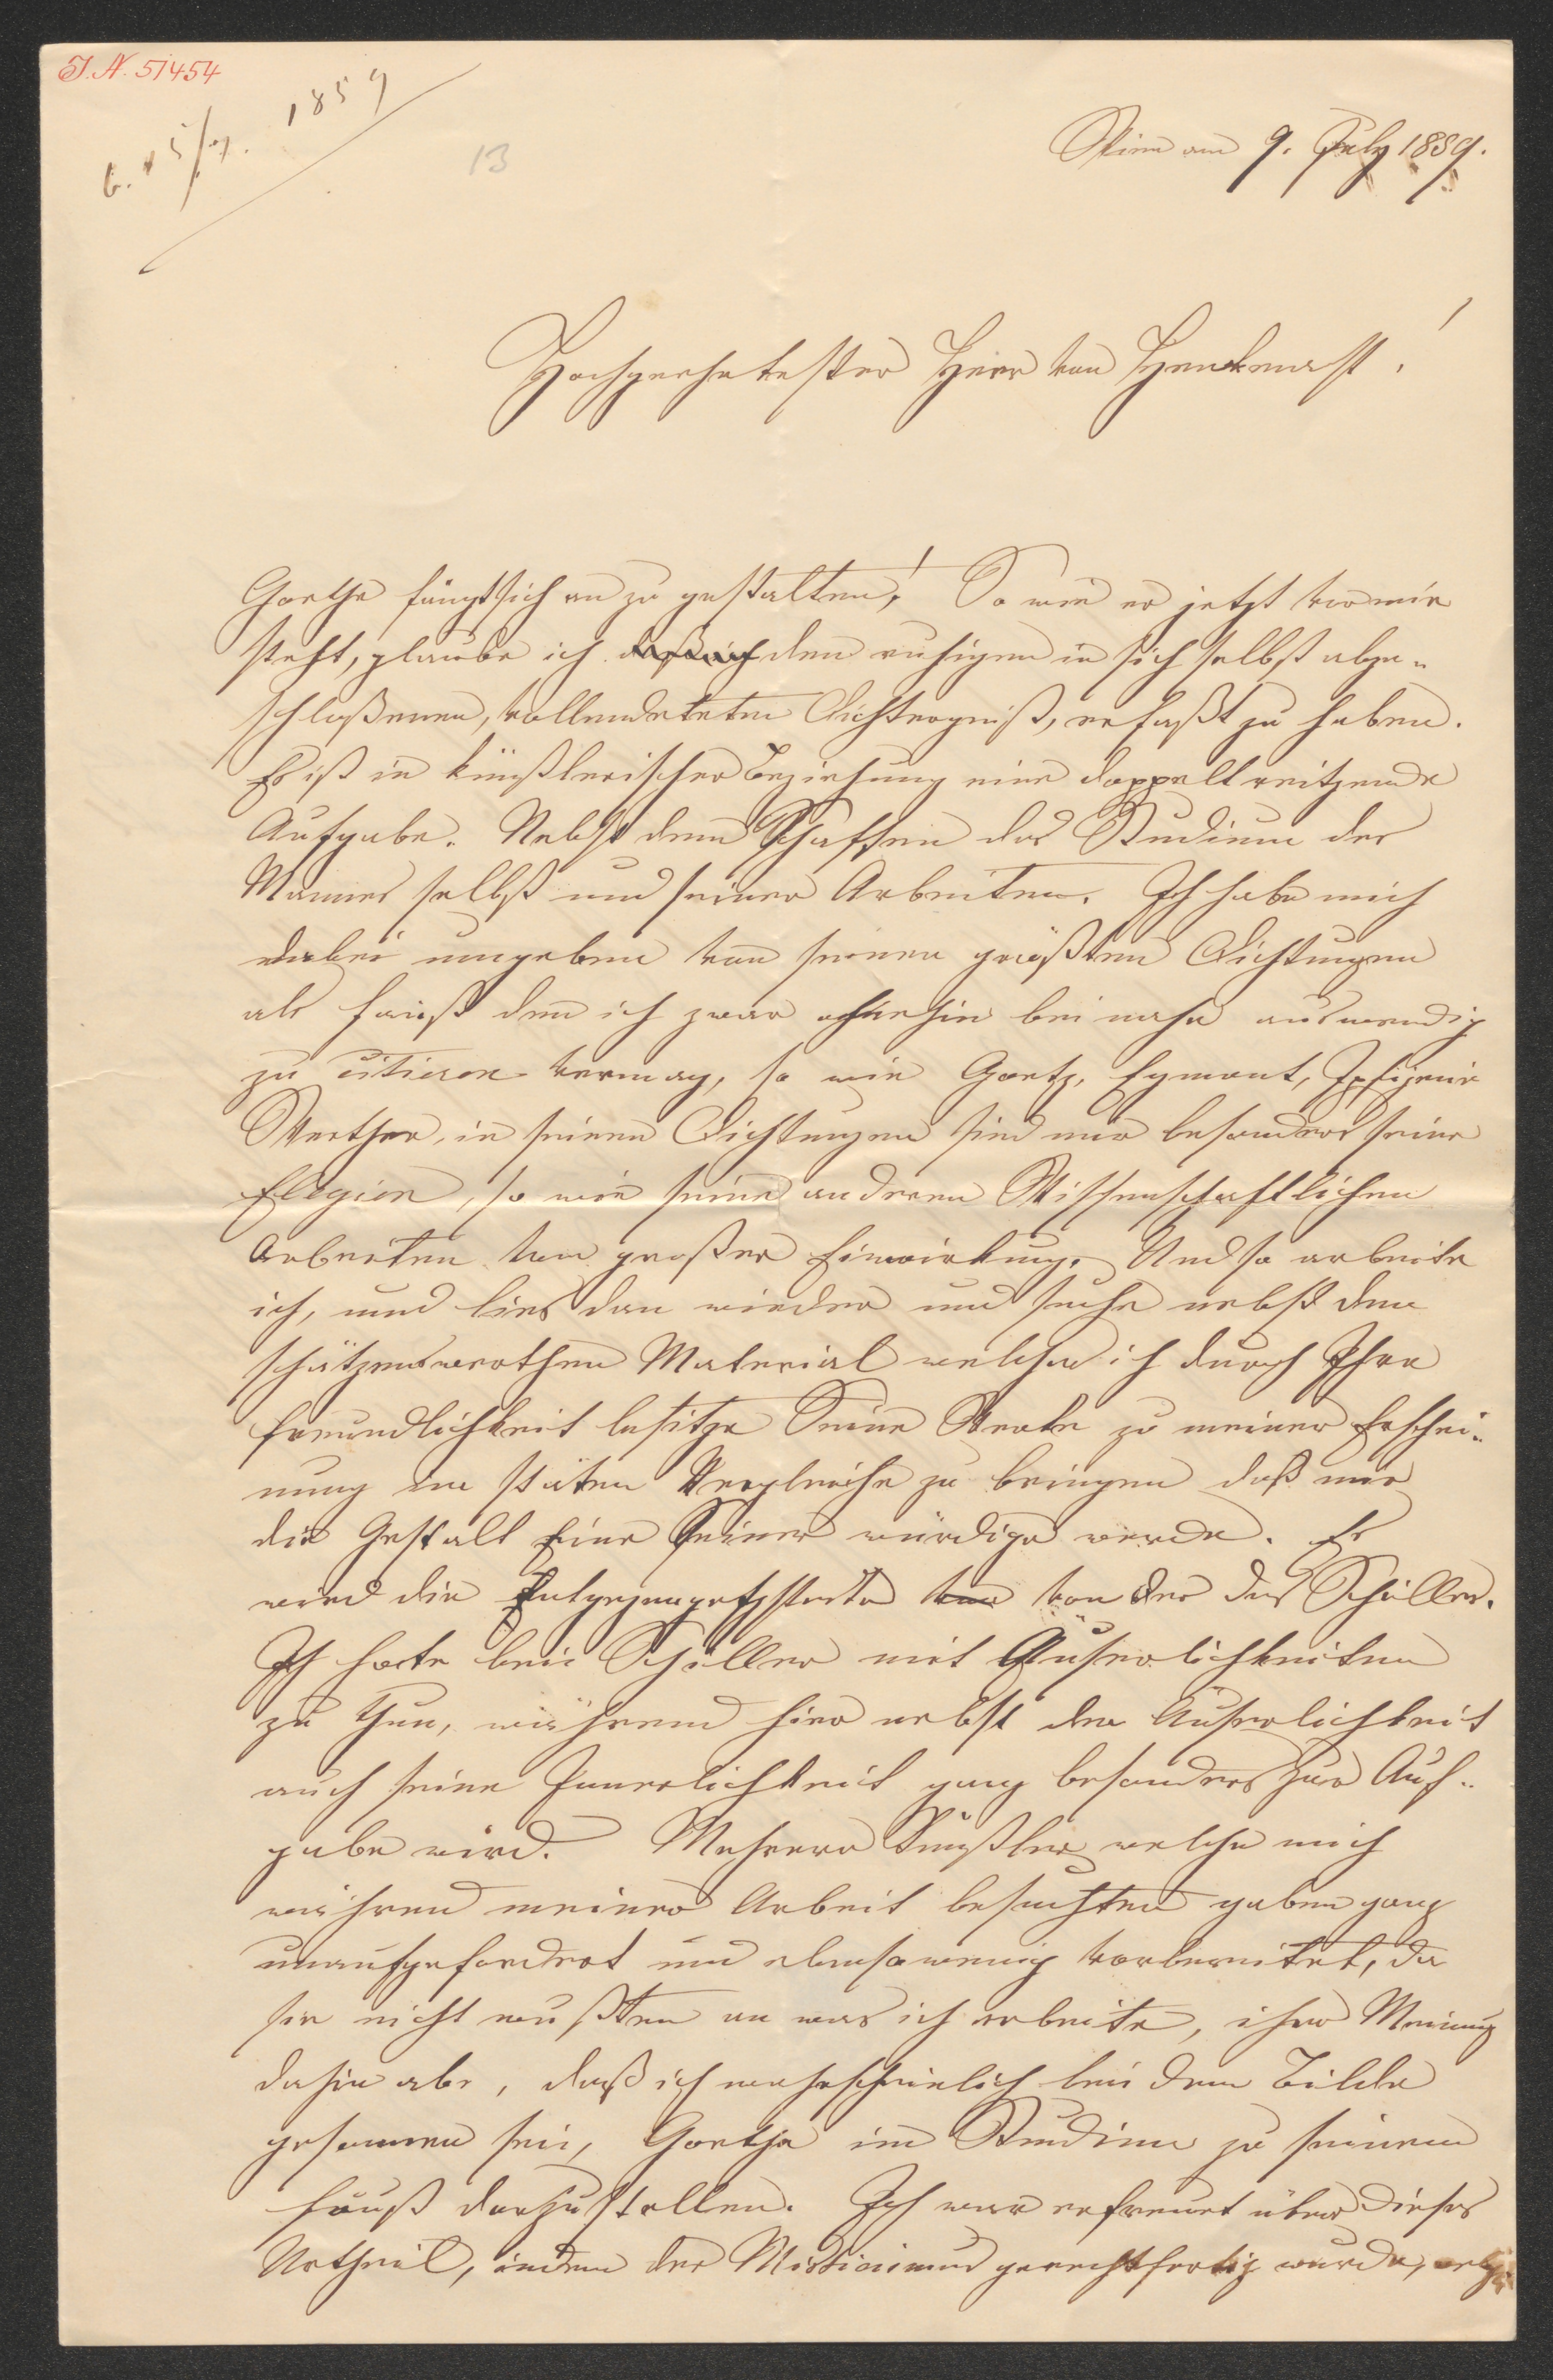 I.N. 51454
b. 15/7. 1859
13
Wien am 9. July 1859.
Hochgeehrtester Herr von Heckenast!
Goethe fängt sich an zu gestalten! So wie er jetzt vor mir
steht, glaube ich daß ich den ruhigen in sich selbst abge-
schloßenen, vollendeteten Dichtergeist, erfaßt zu haben.
Es ist in künstlerischer Beziehung eine doppelt reitzende
Aufgabe. Nebst dem Schaffen das Studium des
Mannes selbst und seiner Arbeiten. Ich habe mich
dabei umgeben von seinen größten Dichtungen
als Faust den ich zwar ohnehin bei nahe auswendig
zu citieren vermag, so wie Goetz, Egmont, Iphigenie
Werther, in seinen Dichtungen sind mir besonders seine
Elegien, so wie seine anderen Wissenschaftlichen
Arbeiten von großer Einwirkung. Und so arbeite
ich, und lies dan wieder und suche nebst dem
schätzenswerthen Material welches ich durch Ihre
Freundlichkeit besitze Seine Werke zu meiner Erschei-
nung im stäten Vergleiche zu bringen daß mir
die Gestalt Eine Seiner würdige werde. Es
wird die Entgegengesetzteste von von der des Schiller.
Ich hatte bei Schiller mit Äußerlichkeiten
zu thun, während hier nebst der Äußerlichkeit
auch seine Innerlichkeit ganz besonders zur Auf-
gabe wird. Mehrere Künstler welche mich
während meiner Arbeit besuchten gaben ganz
unaufgefordert und ebensowenig vorbereitet, da
sie nicht wußten an was ich arbeite, ihre Meinung
dahin ab, daß ich wahrscheinlich bei dem Bilde
gesonnen sei, Goethe im Studium zu seinem
Faust darzustellen. Ich war erfreut über dieses
Urtheil, indem der Misticismus gerechtfertig wurde,